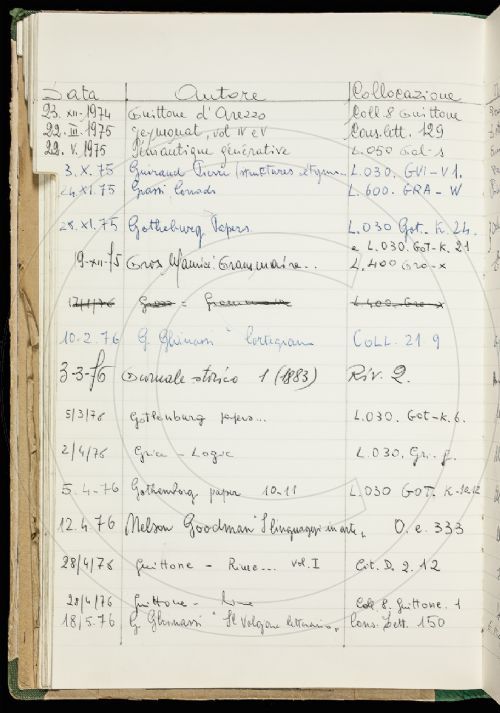 Data Autore Collocazione
23.XII.1974 Guittone d'Arezzo Coll. 8 Guittone
22.III.1975 Geymonat, vol IV e V Cons. lett. 129
22.V.1975 Sémiotique générative L.050
3.X.75 Guiraud Pierre structures étym. L.030. GUI-V1.
24.XI.75 Grassi Corrado L.600. GRA-W
28.XI.75 Gotheburg Papers L.030 Got-K.24.
e L.030. Got-K.21
19-XII-75 Gros, Maurice Grammaire.. L.400 Gro-x
12/1/76 Gross = Grammaire L.400. Gro-x
10.2.76 G. Ghinassi Cortegiano COLL. 21 9
3-3-76 Giornale storico 1 (1883) Riv. 2.
5/3/76 Gothenburg papers... L.030. Got-K.6.
2/4/76 Grice - Logic L.030. Gri.
5.4-76 Gothemborg paper 10-11 L.030 GOT. K-10.12
12.4.76 Nelson Goodman "I linguaggi in arte" O.e.333
28/4/76 Guittone - Rime... vol. I Cit. D. 2. 12
28/4/76 Guittone - Rime Coll 8. Guittone. 1
18/5.76 G. Ghinassi "Il Volgare letterario" Cons. Lett. 150